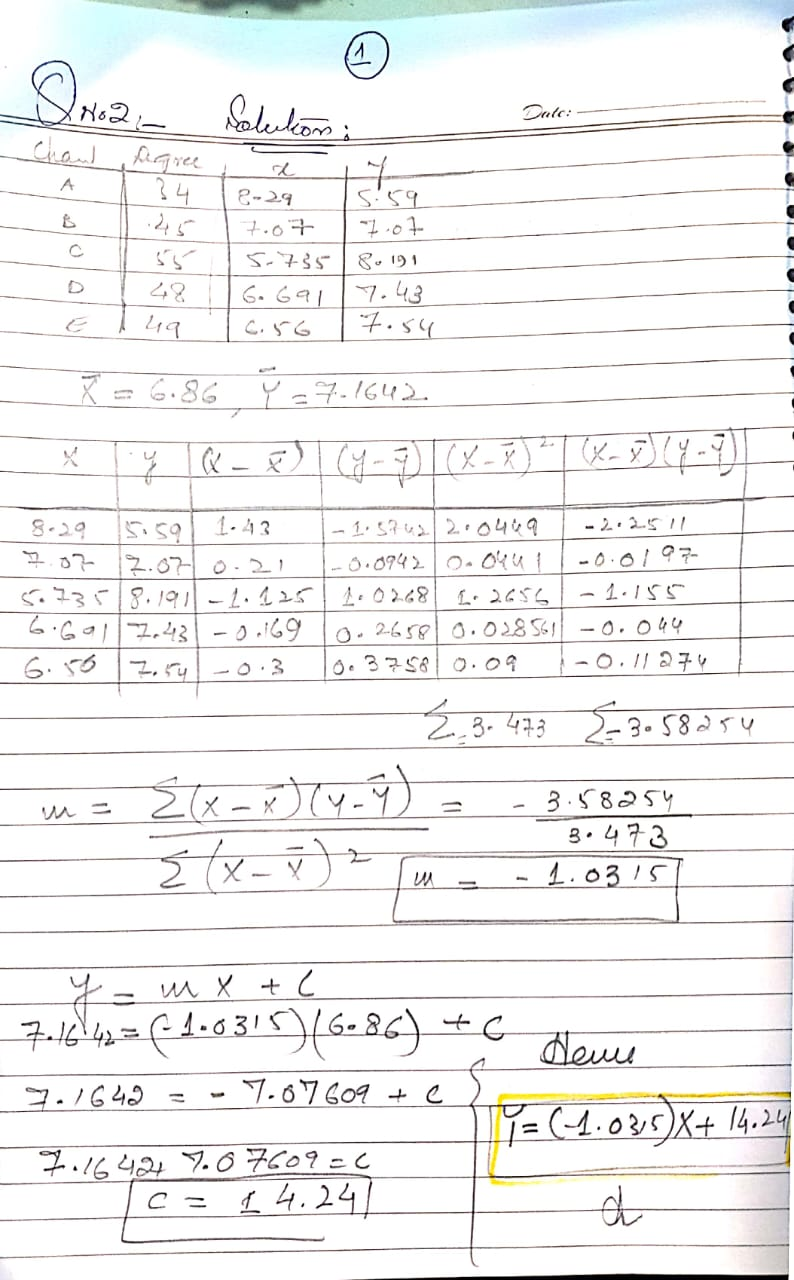 1
Q No2:- Solution:
Date:
Chanl Degree x y
A 34 8.29 5.59
B 45 7.07 7.07
C 55 5.735 8.191
D 48 6.691 7.43
E 49 6.56 7.54
X̄ = 6.86, Ȳ = 7.1642
x y (x - x̄) (y - ȳ) (x - x̄)² (x - x̄)(y - ȳ)
8.29 5.59 1.43 -1.5742 2.0449 -2.2511
7.07 7.07 0.21 -0.0942 0.0441 -0.0197
5.735 8.191 -1.125 1.0268 1.2656 -1.155
6.691 7.43 -0.169 0.2658 0.028561 -0.044
6.56 7.54 -0.3 0.3758 0.09 -0.11274
Σ= 3.473 Σ= 3.58254
m = Σ(x - x̄)(y - ȳ) = - 3.58254
Σ(x - x̄)² 3.473
m = - 1.0315
y = mx + C
7.1642 = (-1.0315)(6.86) + C
7.1642 = - 7.07609 + c
7.1642+ 7.07609 = c
c = 14.24
Hence
Y = (-1.0315)X + 14.24